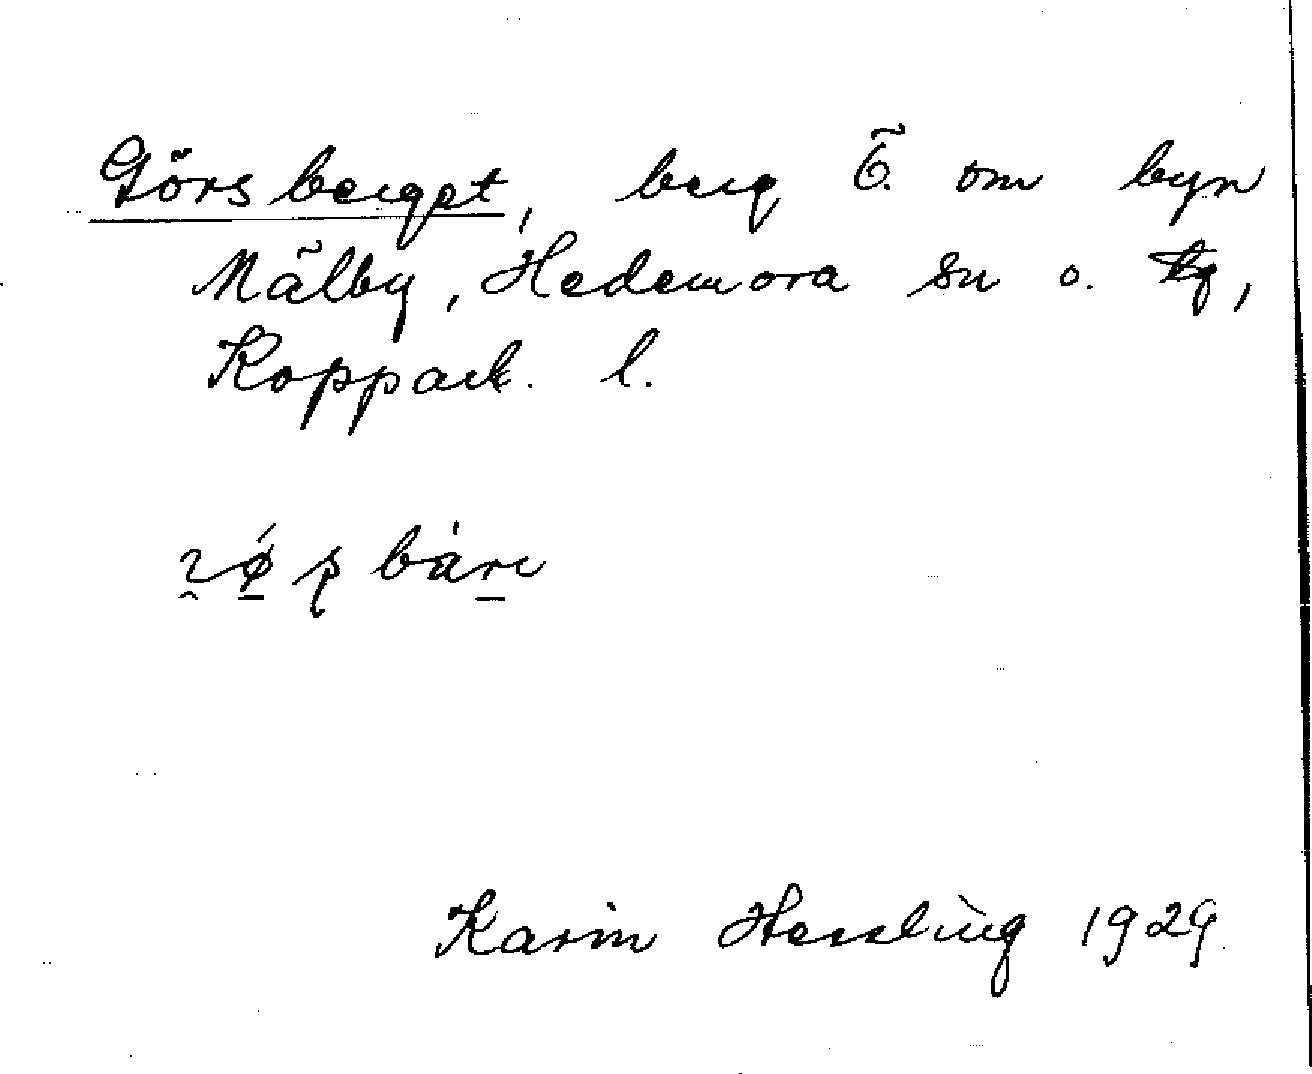 Görsberget, berg Ö. om byn
Mälby, Hedemora sn o. tg,
Kopparb. l.
Karin Hessling 1929